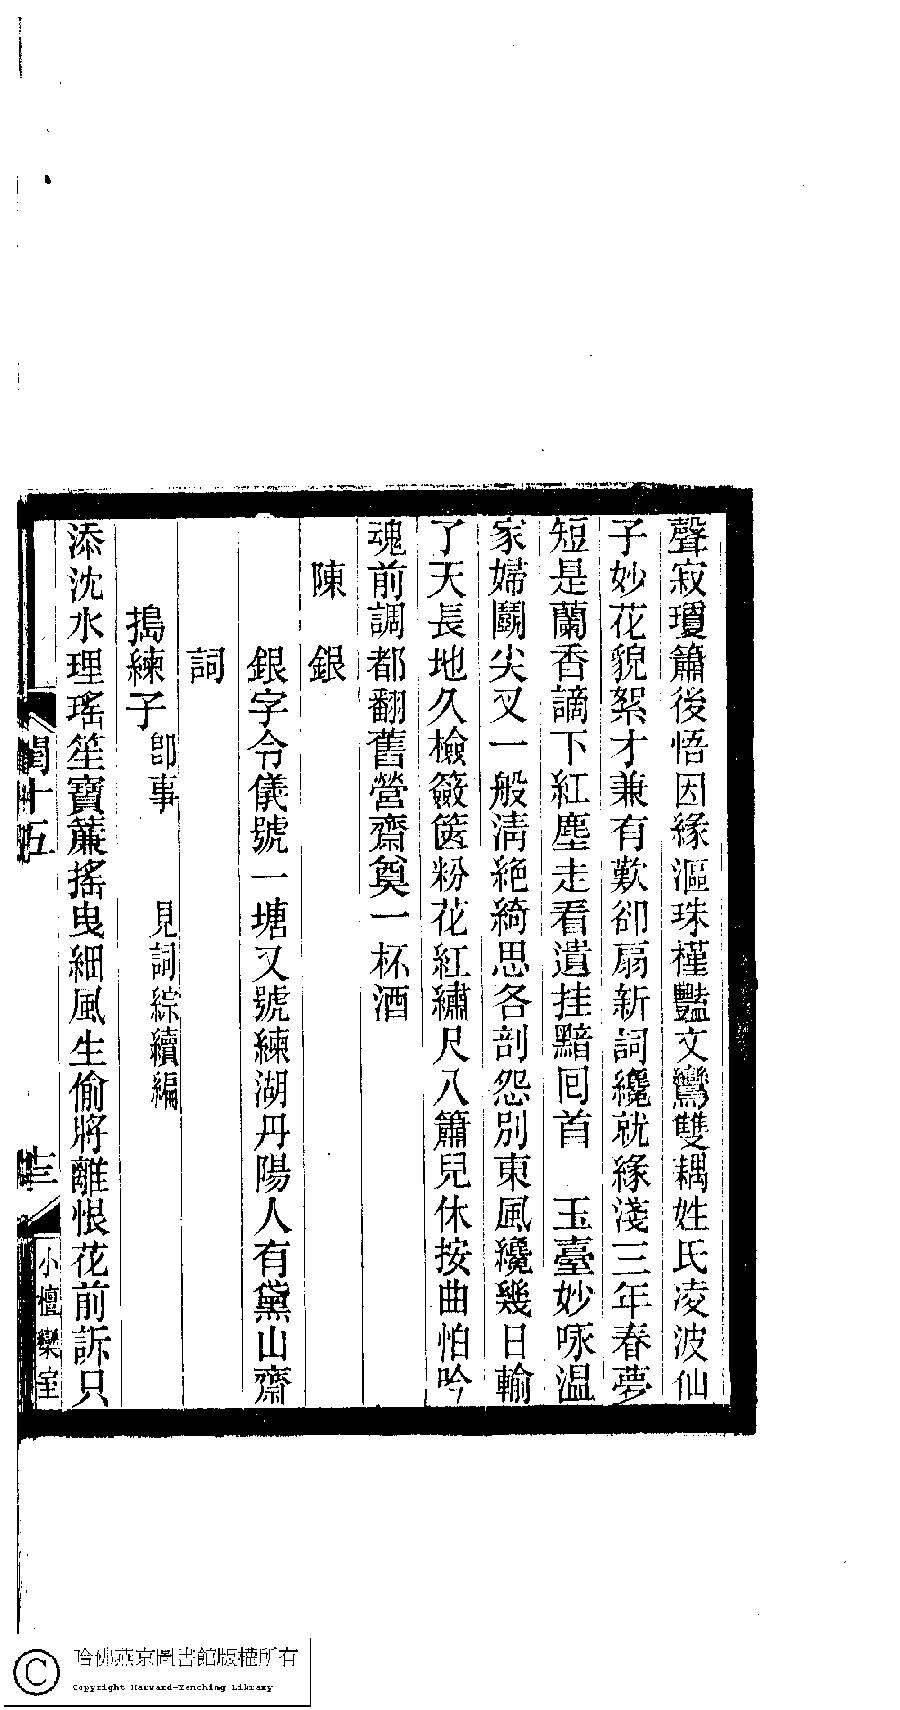 聲寂瓊簫後悟因緣漚珠槿豔文鸞雙耦姓氏凌波仙
子妙花貌絮才兼有歎卻扇新詞纔就緣淺三年春夢
短是蘭香謫下紅塵走看遺挂黯囘首　玉臺妙咏温
家婦鬭尖叉一般淸絶綺思各剖怨別東風纔幾日輸
了天長地久檢籢篋粉花紅繡尺八簫兒休按曲怕吟
魂前調都翻舊營齋奠一杯酒
陳　銀
銀字令儀號一塘又號練湖丹陽人有黛山齋
詞
搗練子卽事　見詞綜續編
添沈水理瑤笙寶簾搖曳細風生偷將離恨花前訴只
閏十五
十三
小檀欒室
哈佛燕京圖書館版權所有
Copyright Harvard-Yenching Library